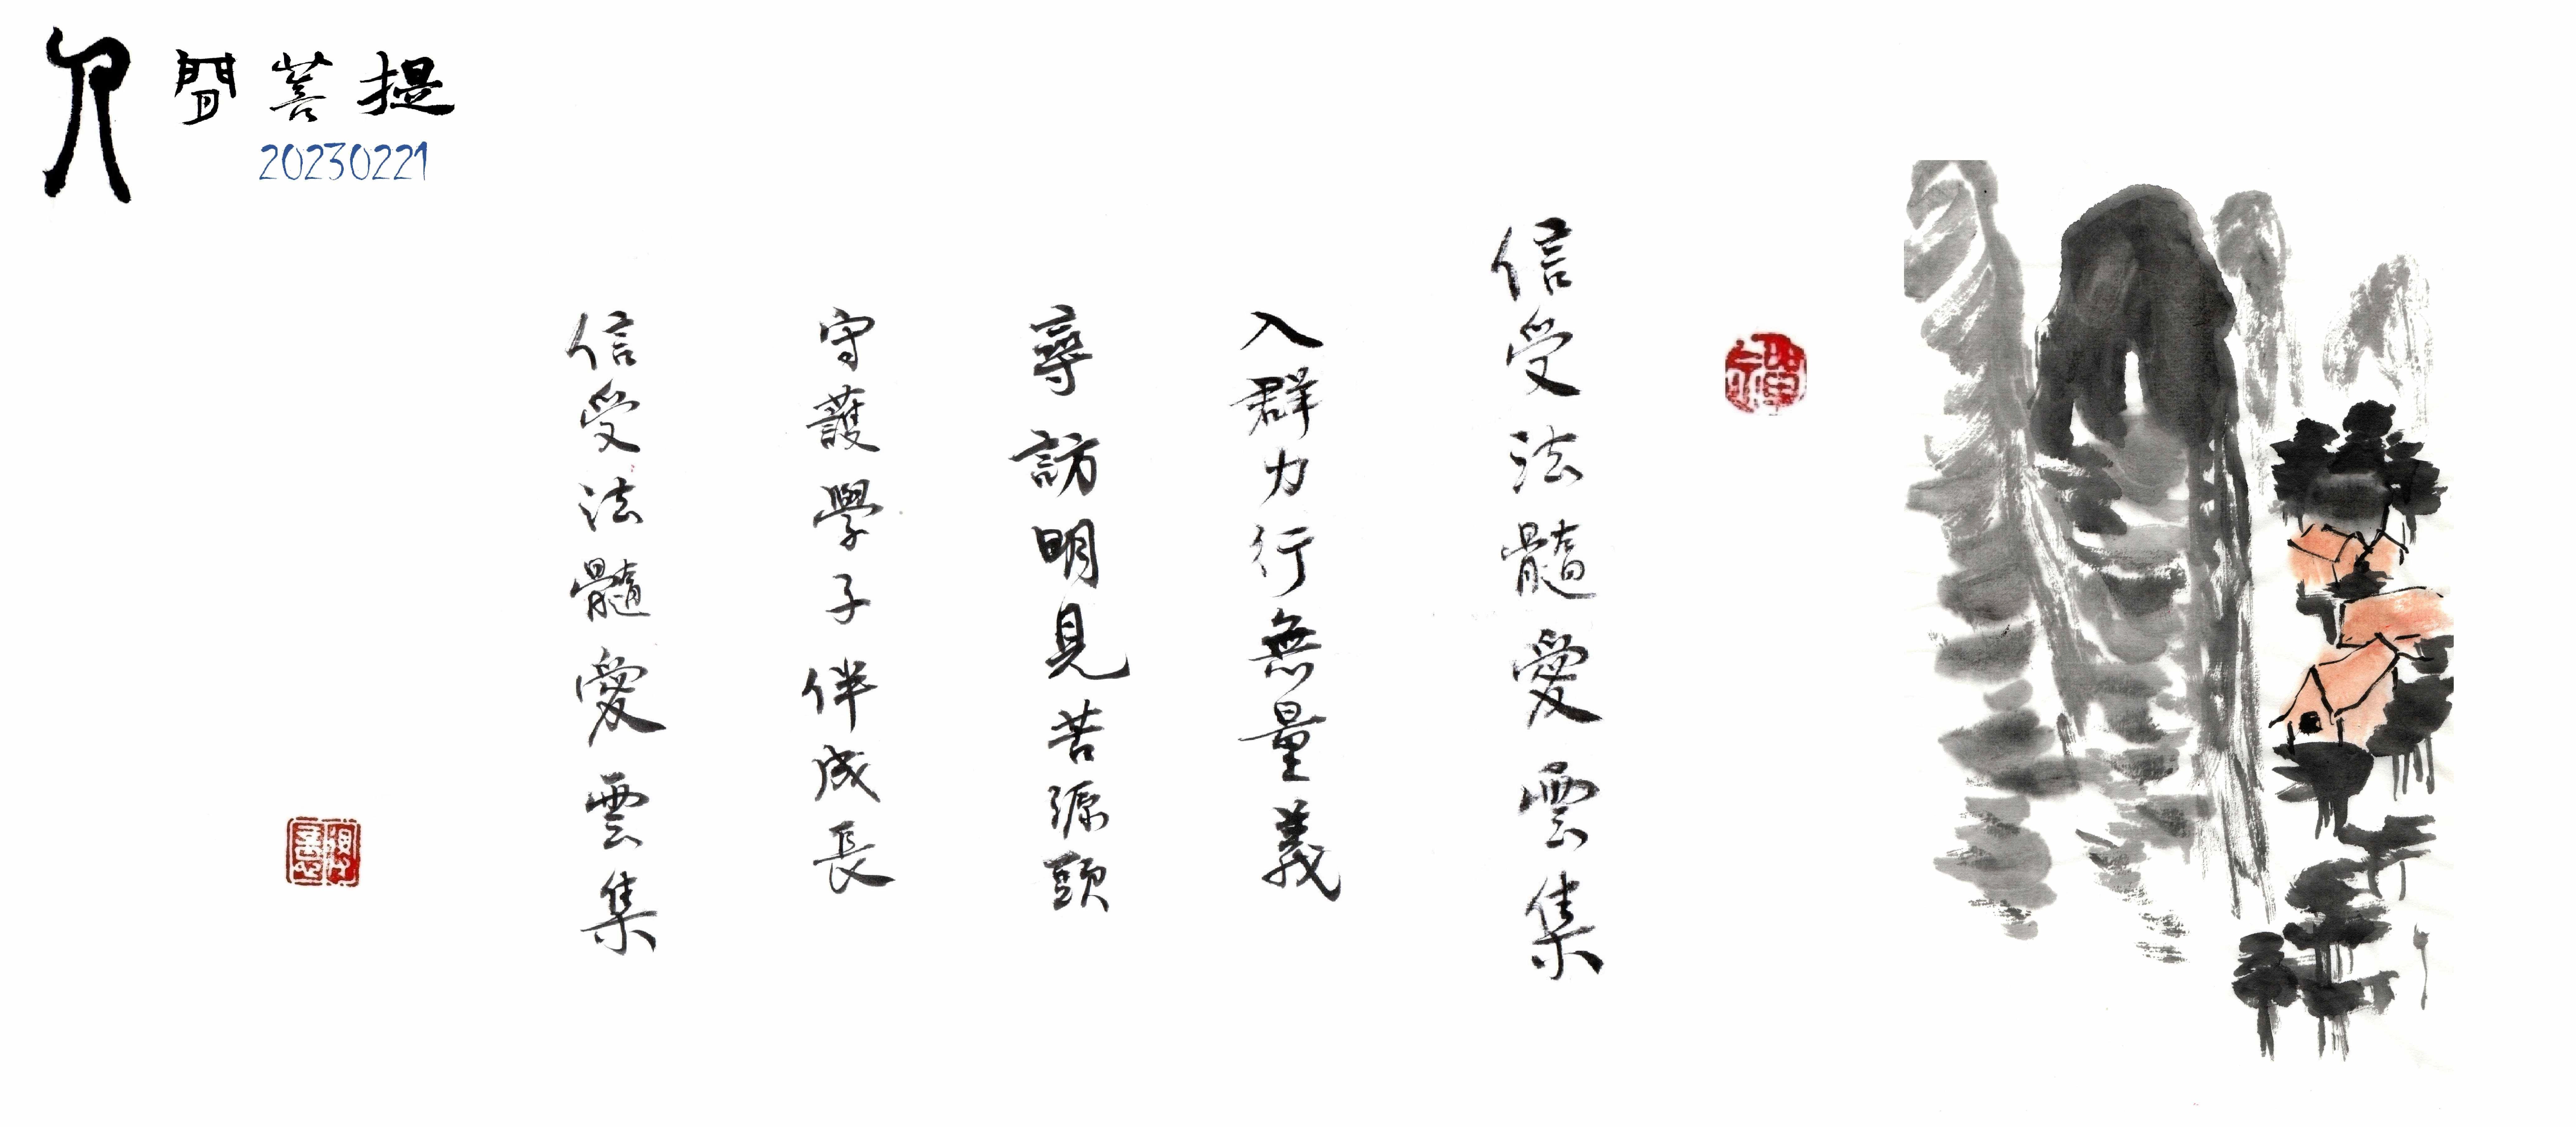 人間菩提
20230221
信受法髓愛雲集
入群力行無量義
尋訪明見苦源頭
守護學子伴成長
信受法髓愛雲集
禪